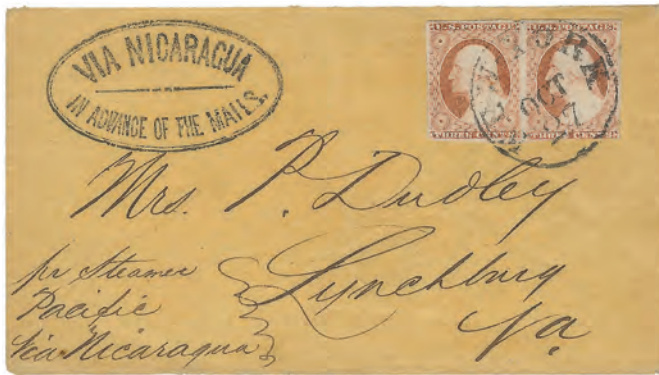 VIA NICARAGUA
IN ADVANCE OF THE MAILS.
U.S. POSTAGE U.S. POSTAGE
THREE CENTS THREE CENTS
YORK
OCT
27
Mrs. P. Dudley
Lynchburg
Va.
pr Steamer
Pacific
via Nicaragua